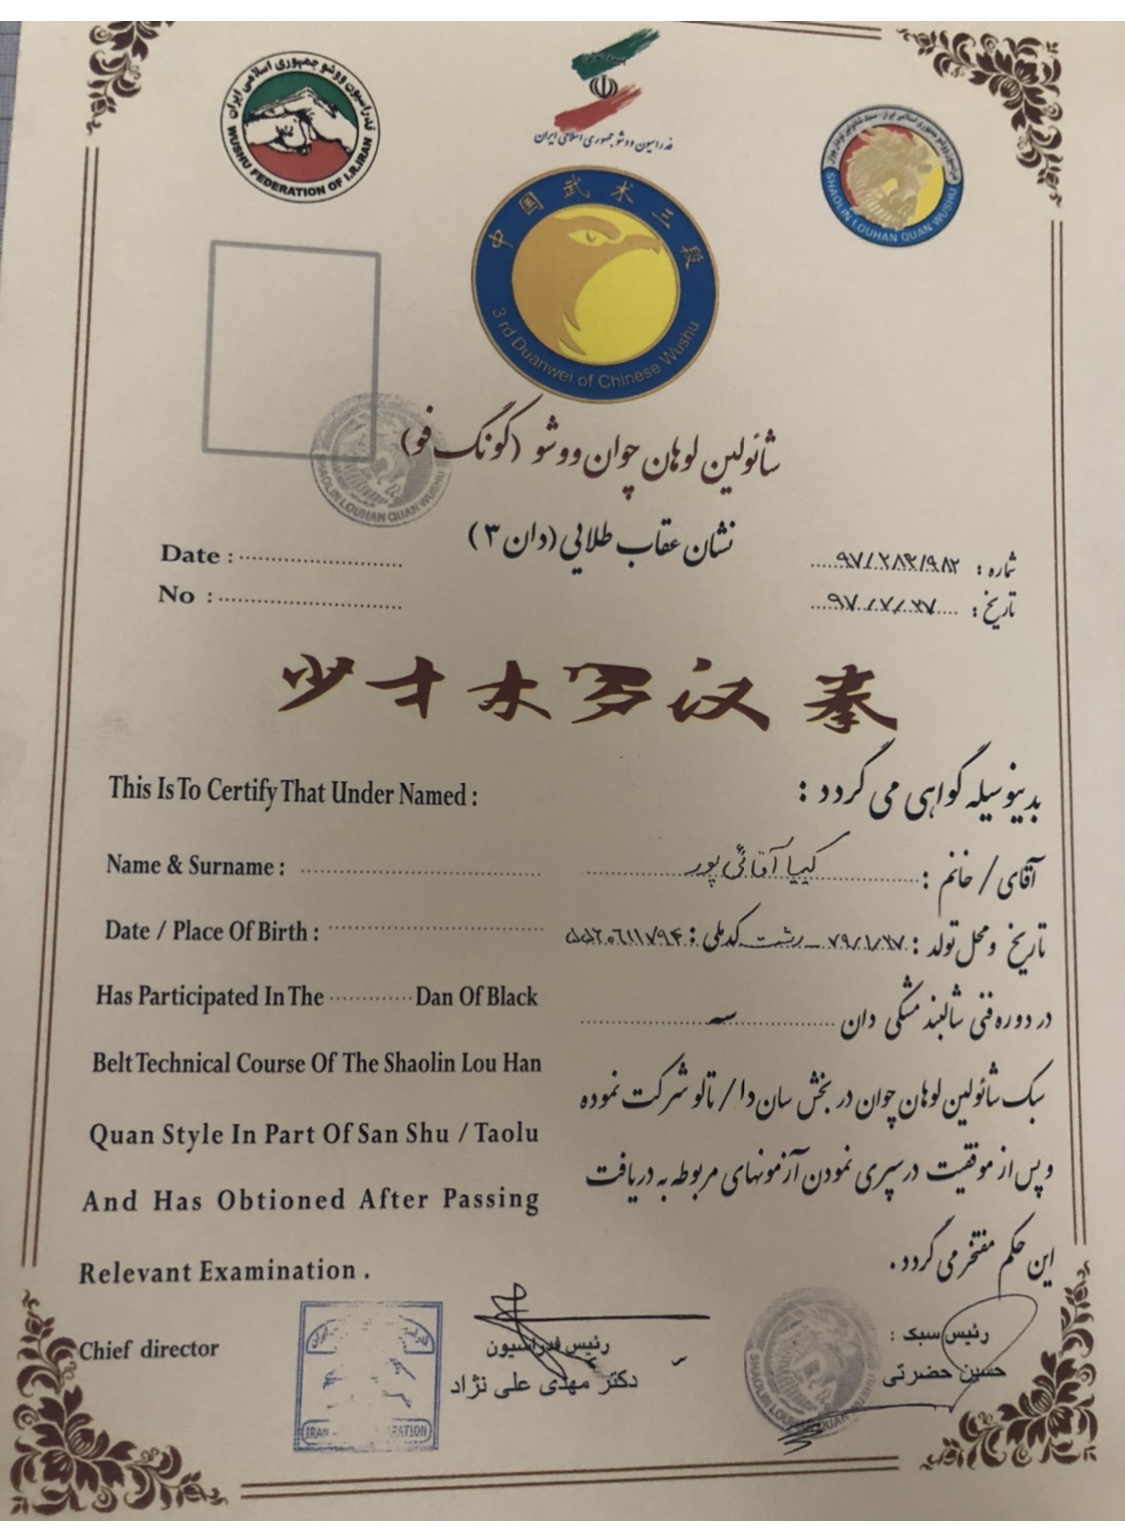 فدراسیون ووشو جمهوری اسلامی ایران
WUSHU FEDERATION OF I.R.IRAN
فدراسیون ووشو جمهوری اسلامی ایران
SHAOLIN LOUHAN QUAN WUSHU
中国武术三段
3 rd Duanwei of Chinese Wushu
شائولین لوهان چوان ووشو (گونگ فو)
SHAOLIN LOUHAN QUAN WUSHU
نشان عقاب طلایی (دان ۳)
Date :
شماره : ۹۷/۲۸۴/۹۸۲
No :
تاریخ : ۹۷/۷/۲۷
少林罗汉拳
This Is To Certify That Under Named :
بدینوسیله گواهی می گردد :
Name & Surname :
آقای / خانم : کییا آقائی پور
Date / Place Of Birth :
تاریخ و محل تولد : ۷۹/۱/۲۷ - رشت کد ملی :
Has Participated In The ............ Dan Of Black
در دوره فنی شالبند مشکی دان سه
Belt Technical Course Of The Shaolin Lou Han
سبک شائولین لوهان چوان در بخش سان دا / تالو شرکت نموده
Quan Style In Part Of San Shu / Taolu
و پس از موفقیت در سپری نمودن آزمونهای مربوطه به دریافت
And Has Obtioned After Passing
این حکم مفتخر می گردد .
Relevant Examination .
Chief director
رئیس فدراسیون
دکتر مهدی علی نژاد
رئیس سبک :
حسین حضرتی